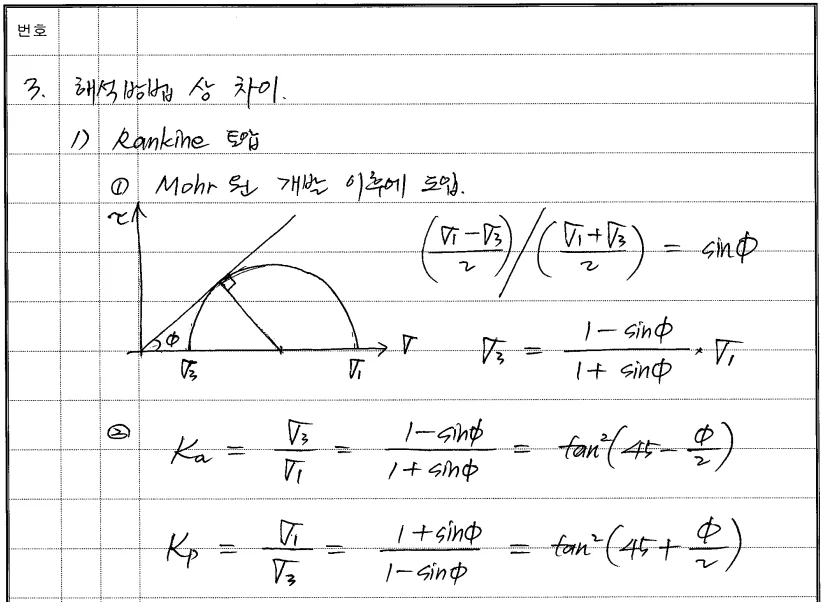 번호
3. 해석방법 상 차이.
1) Rankine 토압
① Mohr 원 개발 이후에 도입.
τ
((σ1 - σ3)/2) / ((σ1 + σ3)/2) = sinφ
φ
σ3 σ1 σ
σ3 = (1 - sinφ)/(1 + sinφ) * σ1
② Ka = σ3/σ1 = (1 - sinφ)/(1 + sinφ) = tan²(45 - φ/2)
Kp = σ1/σ3 = (1 + sinφ)/(1 - sinφ) = tan²(45 + φ/2)